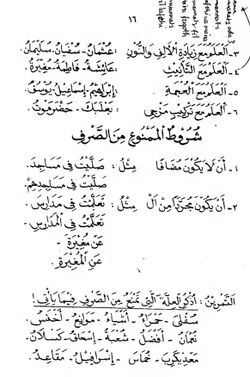 ١٦
٣- العَلَمُ مَعَ زِيَادَةِ الأَلِفِ وَالنُّونِ : عُثْمَانُ - سُفْيَانُ - سُلَيْمَانُ.
٤- العَلَمُ مَعَ التَّأْنِيْثِ : عَائِشَةُ - فَاطِمَةُ - مُغِيْرَةُ.
٥- العَلَمُ مَعَ العُجْمَةِ : إِبْرَاهِيْمُ - إِسْمَاعِيْلُ - يُوْسُفُ.
٦- العَلَمُ مَعَ تَرْكِيْبٍ مَزْجِيٍّ : بَعْلَبَكُّ - حَضْرَمَوْتُ.
شُرُوْطُ المَمْنُوْعِ مِنَ الصَّرْفِ
١- أَنْ لَا يَكُوْنَ مُضَافًا مِثْلُ : صَلَّيْتُ فِي مَسَاجِدَ.
صَلَّيْتُ فِي مَسَاجِدِهِمْ
٢- أَنْ يَكُوْنَ مُجَرَّدًا مِنْ اَلْ مِثْلُ : تَعَلَّمْتُ فِي مَدَارِسَ.
تَعَلَّمْتُ فِي المَدَارِسِ.
عَنْ مُغِيْرَةَ
عَنِ المُغِيْرَةِ.
التَّمْرِيْنُ : اُذْكُرِ العِلَّةَ الَّتِي تَمْنَعُ مِنَ الصَّرْفِ فِيْمَا يَأْتِي !
سُفْلَى - حَمْرَاءُ - أَشْيَاءُ - مَوَانِعُ - أَخْنَسُ -
نُعْمَانُ - أَفْضَلُ - شُعْبَةُ - إِسْحَاقُ - كَسْلَانُ -
مَعْدِيْكَرِبُ - خُمَاسُ - إِسْرَافِيْلُ - مَقَاعِدُ.